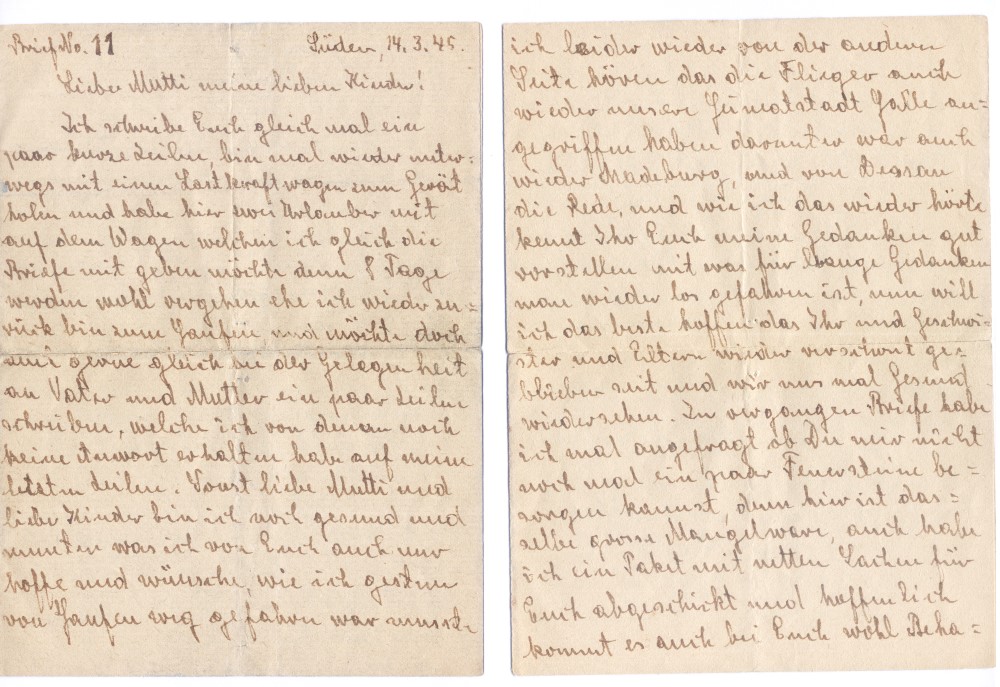 Brief No. 11 Süden, 14.3.45.
Liebe Mutti meine lieben Kinder!
Ich schreibe Euch gleich mal ein
paar kurze Zeilen, bin mal wieder unter-
wegs mit einen Lastkraftwagen zum Gerät
holen und habe hier zwei Urlauber mit
auf dem Wagen welchen ich gleich die
Briefe mit geben möchte denn 8 Tage
werden wohl vergehen ehe ich wieder zu-
rück bin zum Haufen und möchte doch
nur gerne gleich bei der Gelegen heit
an Vater und Mutter ein paar Zeilen
schreiben, welche ich von denen noch
keine Antwort erhalten habe auf meine
letzten Zeilen. Sonst liebe Mutti und
liebe Kinder bin ich noch gesund und
munter was ich von Euch auch nur
hoffe und wünsche, wie ich gestern
von Haufen weg gefahren war musste
ich leider wieder von der anderen
Seite hören das die Flieger auch
wieder unsere Heimatstadt Halle an-
gegriffen haben darunter war auch
wieder Madeburg, und von Dessau
die Rede, und wie ich das wieder hörte
kennt Ihr Euch meine Gedanken gut
vorstellen mit was für bange Gedanken
man wieder los gefahren ist, nun will
ich das beste hoffen das Ihr und Geschwi-
ster und Eltern wieder verschont ge-
blieben seit und wir uns mal Gesund
wiedersehen. In vergangen Briefe habe
ich mal angefragt ob Du mir nicht
noch mal ein paar Feuersteine be-
sorgen kannst, denn hier ist das-
selbe grosse Mangelware, auch habe
ich ein Paket mit netten Sachen für
Euch abgeschickt und hoffenlich
kommt es auch bei Euch wohl Beha-